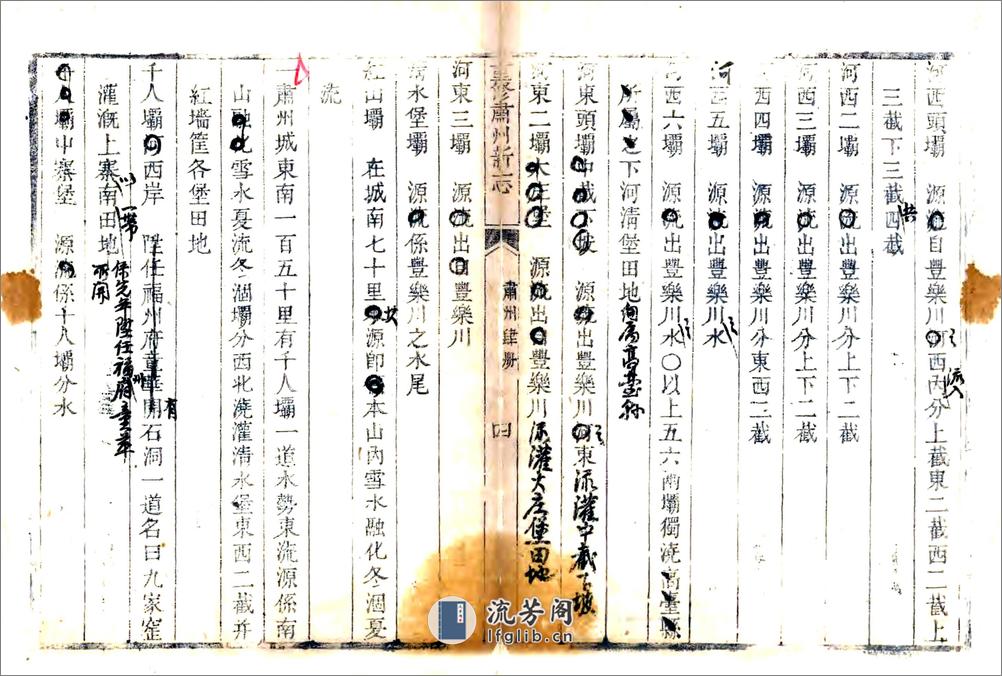 河西頭壩 源自豐樂川河西分上截東二截西二截上
三截下三截四截
共
流入
河西二壩 源出豐樂川分上下二截
河西三壩 源出豐樂川分上下二截
西四壩 源出豐樂川分東西二截
河西五壩 源流出豐樂川水
河西六壩 源流出豐樂川水〇以上五六兩壩獨澆高臺縣
所屬之下河清堡田地向為高臺
河東頭壩中截下坡 源出豐樂川河東流灌中截下坡
河東二壩大庄堡 源流出豐樂川流灌大庄堡田地
重修肅州新志
肅州肆册
四
河東三壩 源流出自豐樂川
清水堡壩 源流係豐樂川之水尾
紅山壩 在城南七十里水源即本山內雪水融化冬涸夏
共
流
一肅州城東南一百五十里有千人壩一道水勢東流源係南
山融化雪水夏流冬涸壩分西北澆灌清水堡東西二截并
紅墻筐各堡田地
千人壩河西岸 陞任福州府童華開石洞一道名曰九家窑
有
灌溉上寨南田地
一帶
係先年陞任福州府童華
所開
千人壩中寨堡 源流係千人壩分水
流芳阁
lfglib.cn